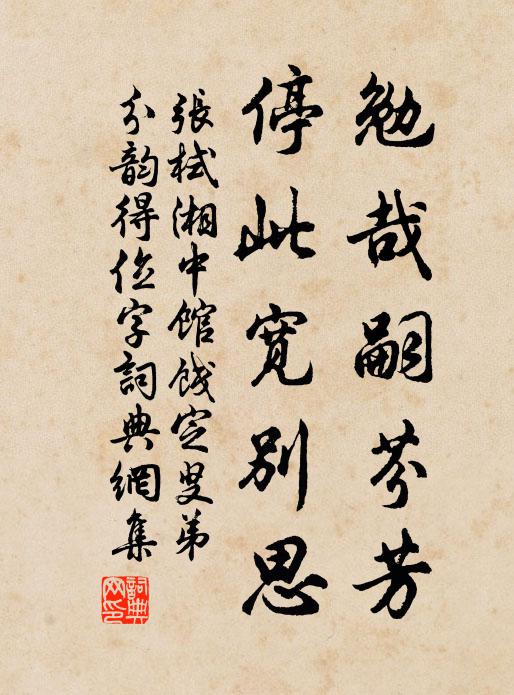 勉哉嗣芬芳
停此寬別思
張栻湘中館餞定叟弟
分韵得位字詞典網集
詞典網印